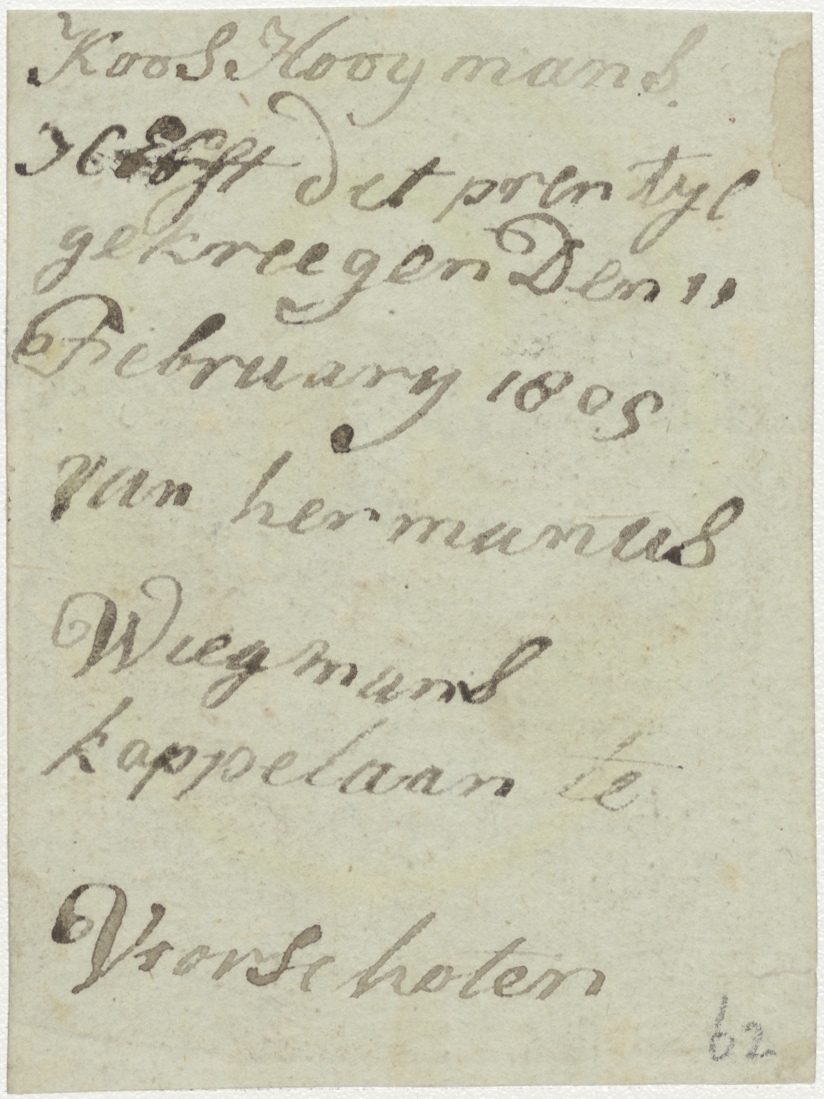 Koos Hooymans
Heeft dit prentye
gekreegen Den 11
February 1805
van hermanus
Wiegmans
kappelaan te
Voorschoten
62